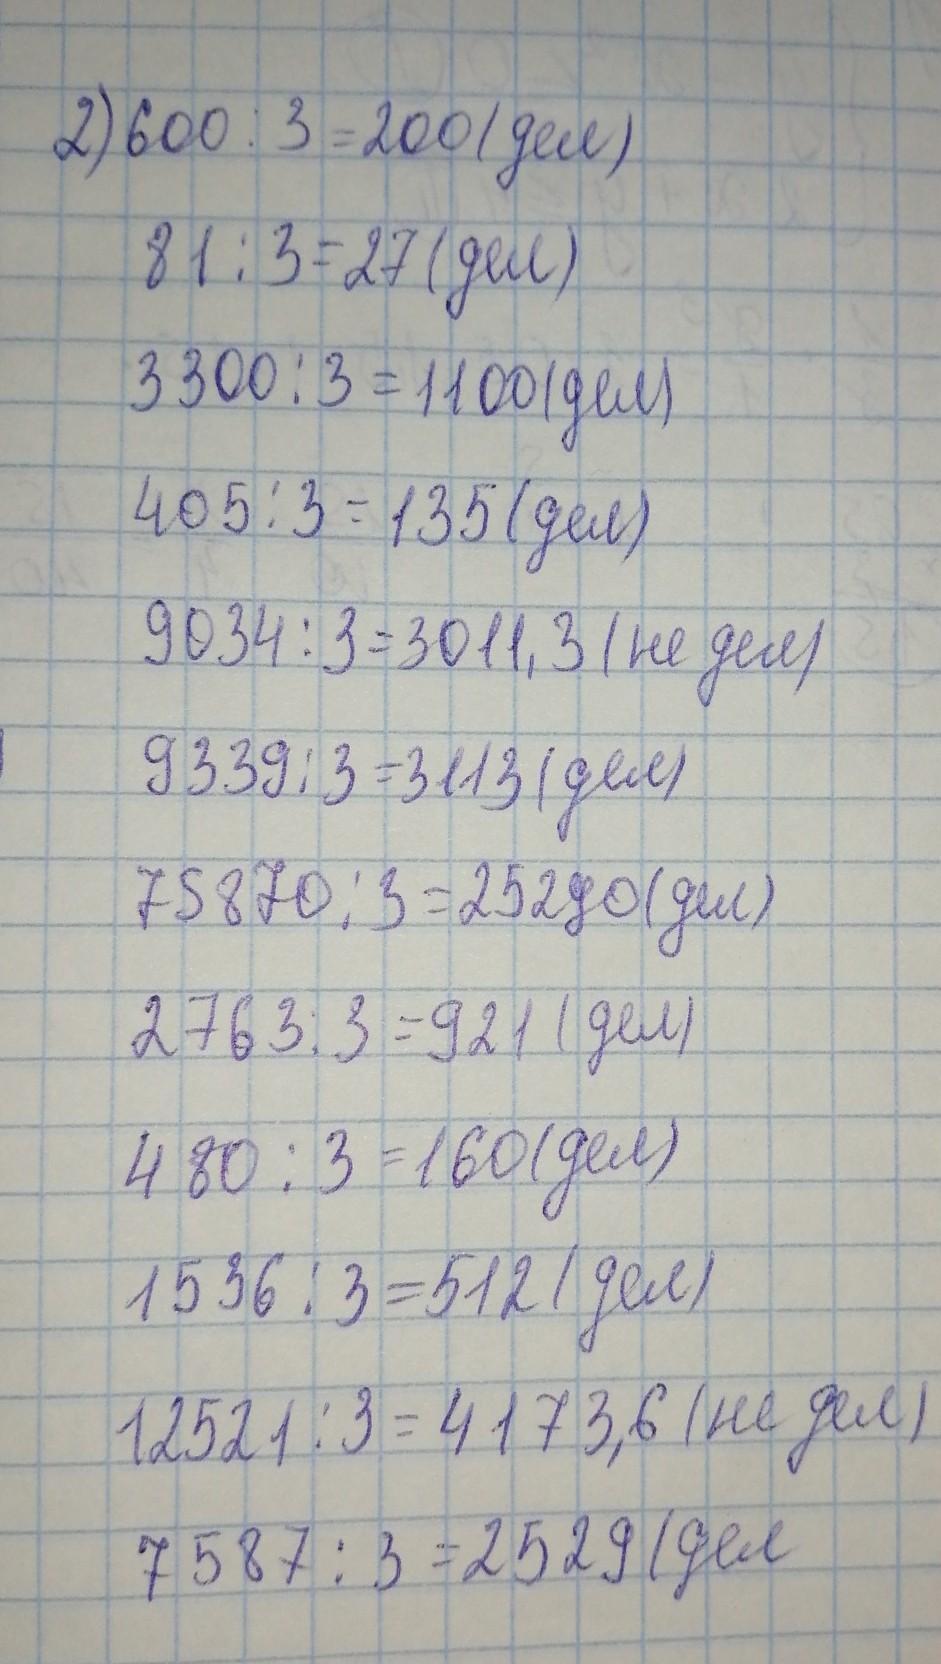 2) 600 : 3 = 200 (дел)
81 : 3 = 27 (дел)
3300 : 3 = 1100 (дел)
405 : 3 = 135 (дел)
9034 : 3 = 3011,3 (не дел)
9339 : 3 = 3113 (дел)
75870 : 3 = 25290 (дел)
2763 : 3 = 921 (дел)
480 : 3 = 160 (дел)
1536 : 3 = 512 (дел)
12521 : 3 = 4173,6 (не дел)
7587 : 3 = 2529 (дел